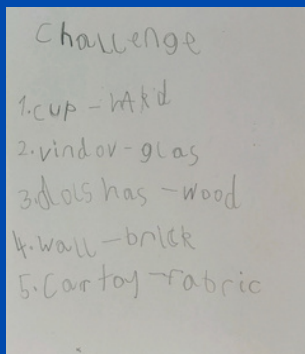 Challenge
1. cup -
2. vindov-glas
3. dols has - wood
4. wall - brick
5. Car toy - fabric